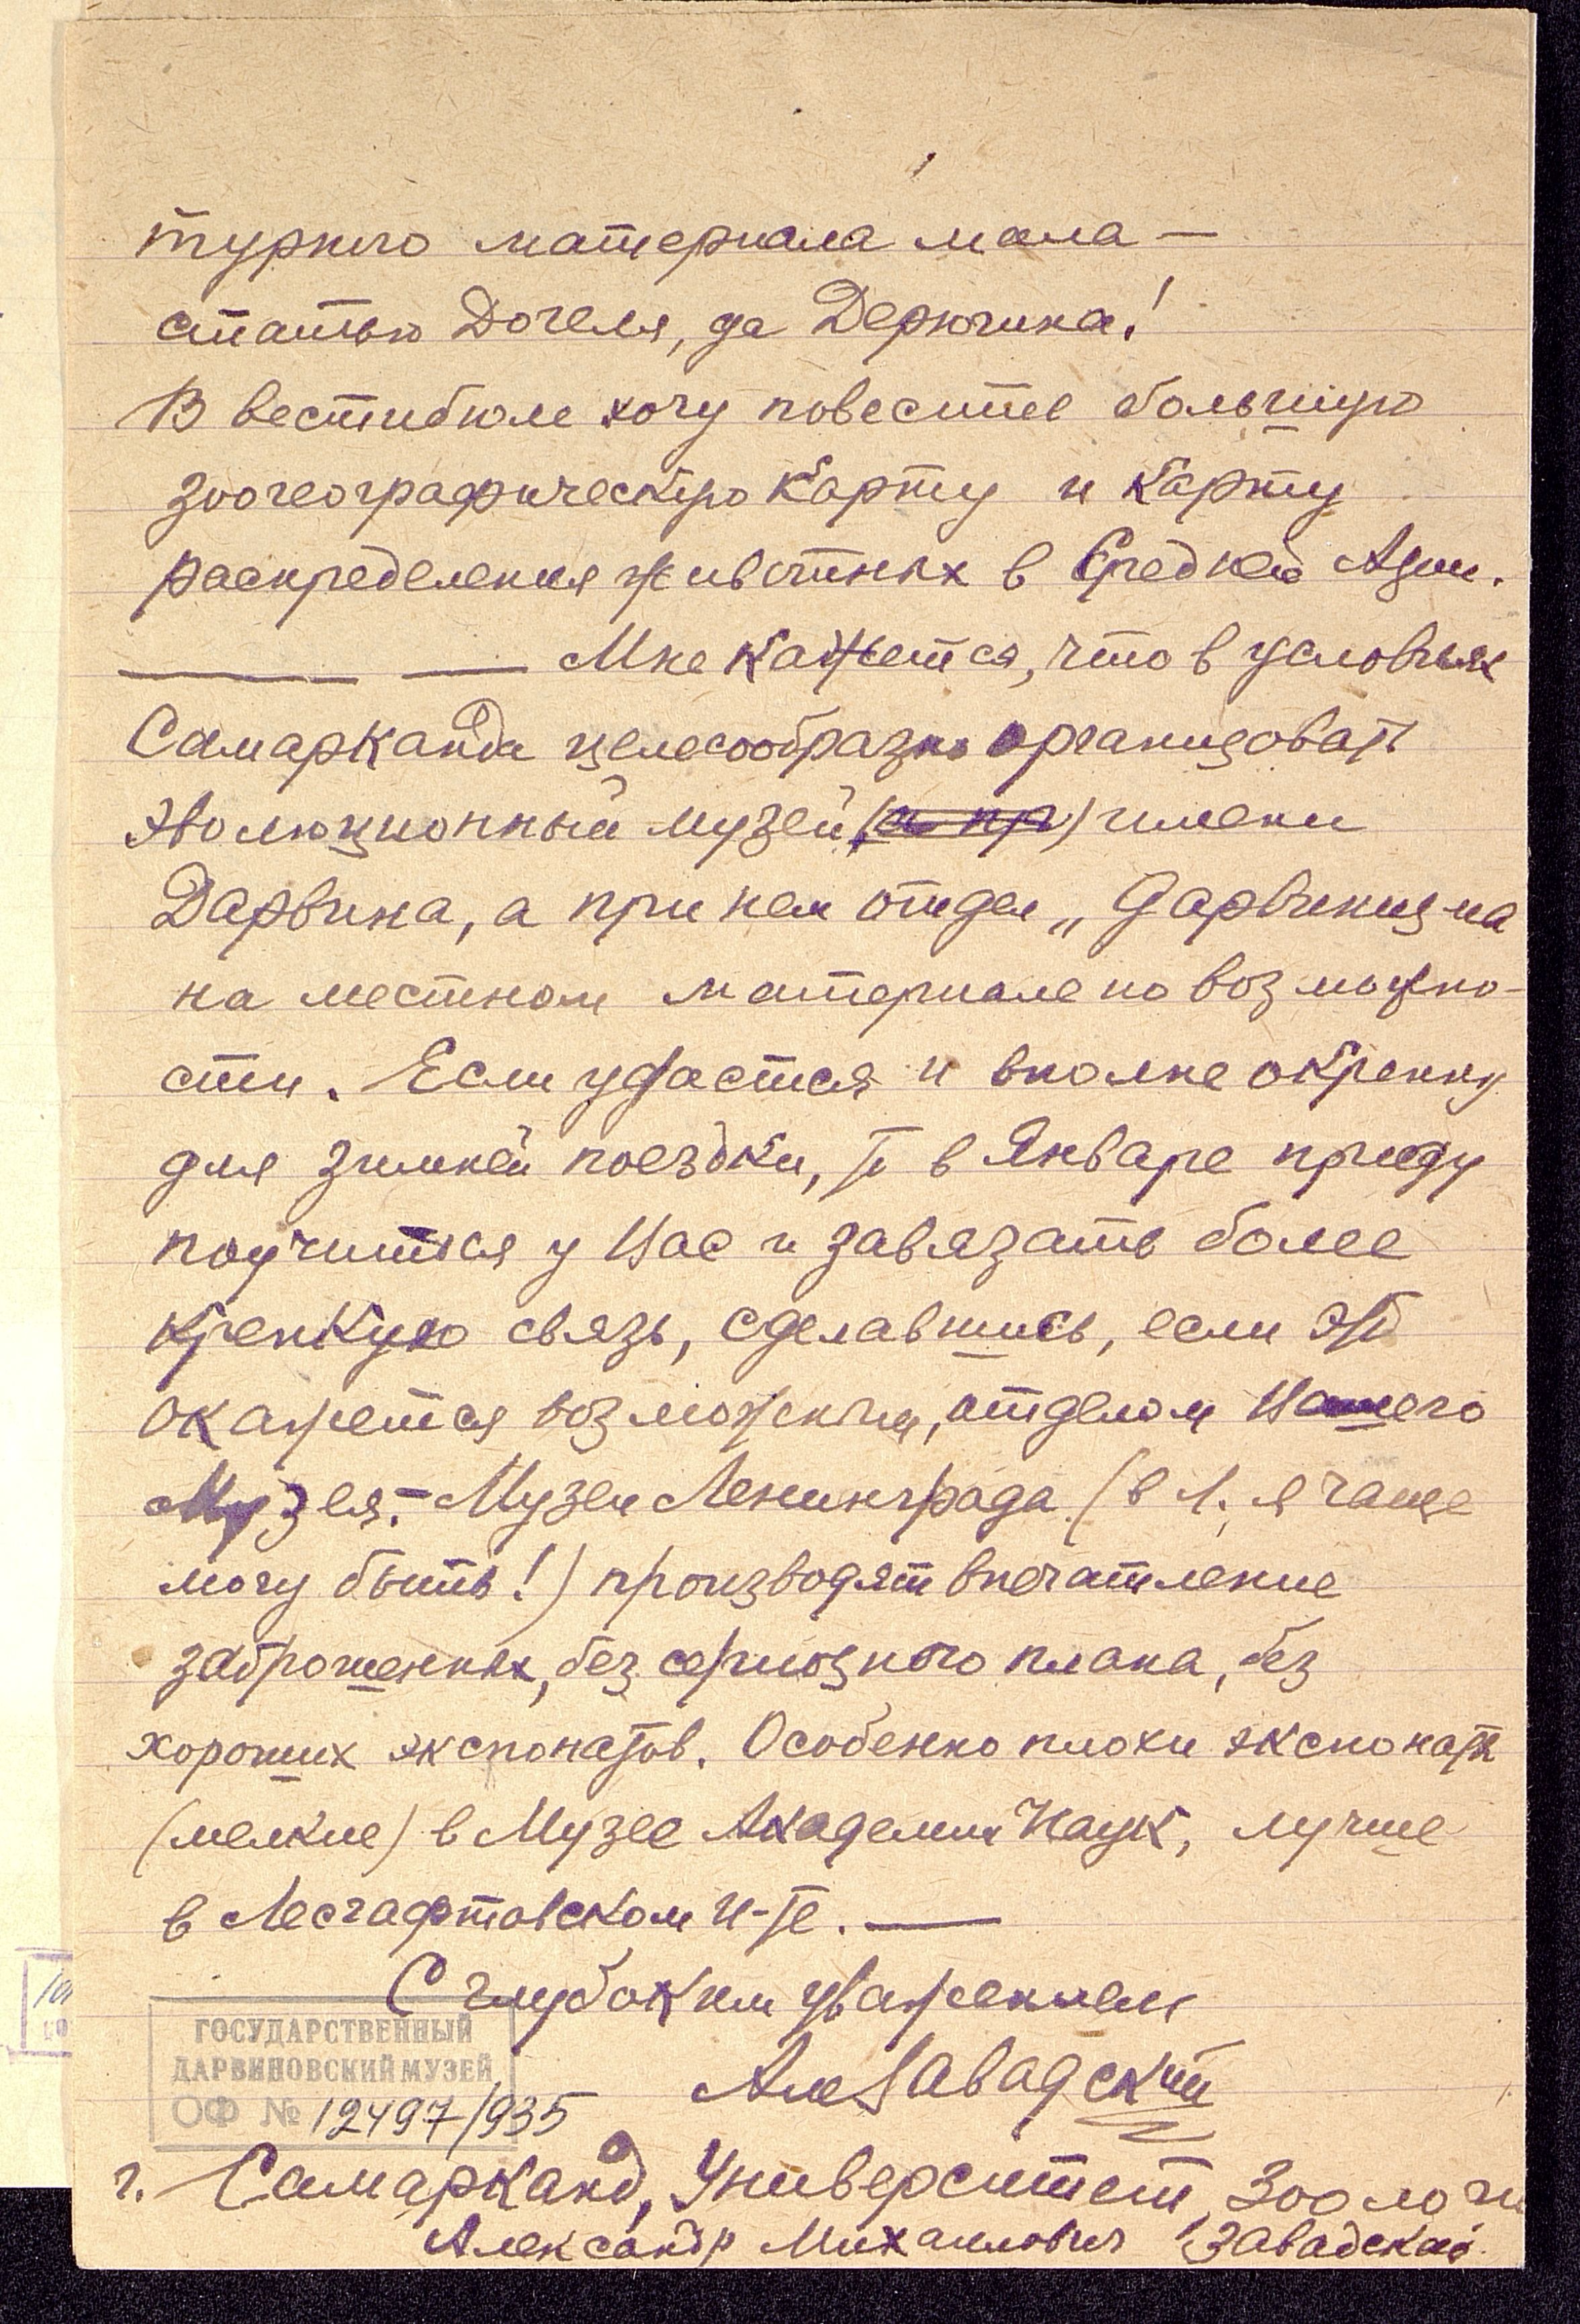 турного материала мало —
статью Догеля, да Дерюгина!
В вестибюле хочу повесить большую
зоогеографическую карту и карту
распределения животных в Средней Азии.
Мне кажется, что в условиях
Самарканда целесообразно организовать
эволюционный музей (и пр) имени
Дарвина, а при нем отдел „Дарвинизма
на местном материале по возможно-
сти. Если удастся и вполне окрепну
для зимней поездки, то в Январе приеду
поучиться у Вас и завязать более
крепкую связь, сделавшись, если это
окажется возможным, отделом Вашего
Музея. — Музеи Ленинграда (в Л. я чаще
могу быть!) производят впечатление
заброшенных, без серьозного плана, без
хороших экспонатов. Особенно плохи экспонаты
(мелкие) в Музее Академии Наук, лучше
в Лесгафтовском И-те. —
С глубоким уважением
Але Завадский
ГОСУДАРСТВЕННЫЙ
ДАРВИНОВСКИЙ МУЗЕЙ
ОФ № 12497/935
г. Самарканд, Университет, Зоологи
Александр Михаилович Завадский.